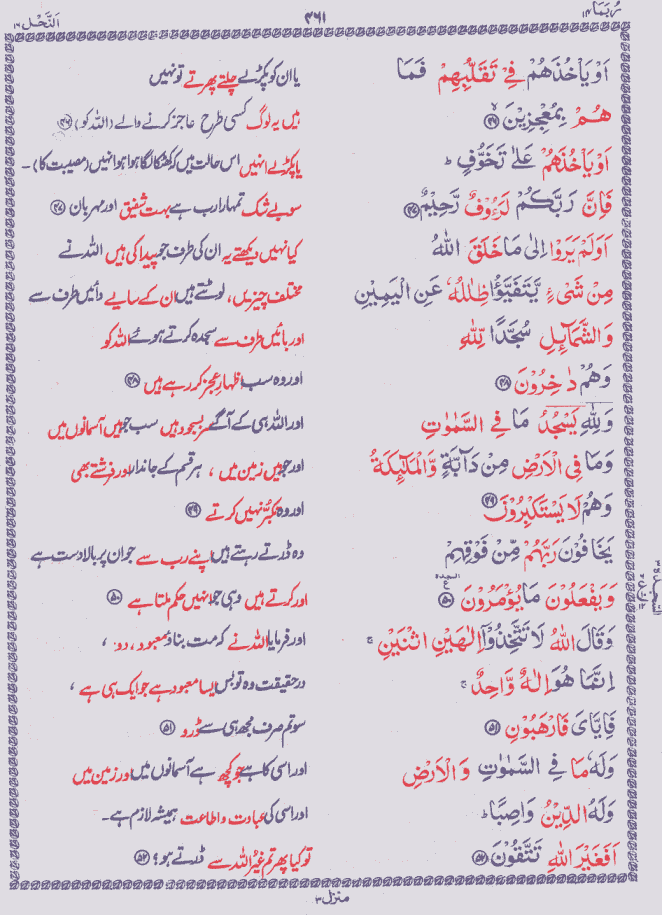 رُبَمَا ۱۴
۳۶۱
اَلنَّحْل ۱۶
اَوْ يَاْخُذَهُمْ فِيْ تَقَلُّبِهِمْ فَمَا یا ان کو پکڑ لے چلتے پھرتے تو نہیں
هُمْ بِمُعْجِزِيْنَ ۙ﴿۴۶﴾ ہیں یہ لوگ کسی طرح عاجز کرنے والے (اللہ کو) ﴿۴۶﴾
اَوْ يَاْخُذَهُمْ عَلٰى تَخَوُّفٍ ؕ یا پکڑ لے انہیں اس حالت میں کہ کھٹکا لگا ہوا ہو انہیں (مصیبت کا)۔
فَاِنَّ رَبَّكُمْ لَرَءُوْفٌ رَّحِيْمٌ ﴿۴۷﴾ سو بے شک تمہارا رب ہے بہت شفیق اور مہربان ﴿۴۷﴾
اَوَلَمْ يَرَوْا اِلٰى مَا خَلَقَ اللّٰهُ کیا نہیں دیکھتے یہ ان کی طرف جو پیدا کی ہیں اللہ نے
مِنْ شَيْءٍ يَّتَفَيَّؤُا ظِلٰلُهٗ عَنِ الْيَمِيْنِ مختلف چیزیں، لوٹتے ہیں ان کے سایے دائیں طرف سے
وَالشَّمَآئِلِ سُجَّدًا لِّلّٰهِ اور بائیں طرف سے سجدہ کرتے ہوئے اللہ کو
وَهُمْ دٰخِرُوْنَ ﴿۴۸﴾ اور وہ سب اظہارِ عجز کر رہے ہیں ﴿۴۸﴾
وَلِلّٰهِ يَسْجُدُ مَا فِي السَّمٰوٰتِ اور اللہ ہی کے آگے سر بسجود ہیں سب جو ہیں آسمانوں میں
وَمَا فِي الْاَرْضِ مِنْ دَآبَّةٍ وَّالْمَلٰٓئِكَةُ اور جو ہیں زمین میں، ہر قسم کے جاندار اور فرشتے بھی
وَهُمْ لَا يَسْتَكْبِرُوْنَ ﴿۴۹﴾ اور وہ تکبّر نہیں کرتے ﴿۴۹﴾
يَخَافُوْنَ رَبَّهُمْ مِّنْ فَوْقِهِمْ وہ ڈرتے رہتے ہیں اپنے رب سے جو ان پر بالا دست ہے
وَيَفْعَلُوْنَ مَا يُؤْمَرُوْنَ ﴿۵۰﴾ اور کرتے ہیں وہی جو انہیں حکم ملتا ہے ﴿۵۰﴾
وَقَالَ اللّٰهُ لَا تَتَّخِذُوْٓا اِلٰهَيْنِ اثْنَيْنِ ۚ اور فرمایا اللہ نے کہ مت بناؤ معبود، دو،
اِنَّمَا هُوَ اِلٰهٌ وَّاحِدٌ ۚ درحقیقت وہ تو بس ایسا معبود ہے جو ایک ہی ہے،
فَاِيَّايَ فَارْهَبُوْنِ ﴿۵۱﴾ سو تم صرف مجھ ہی سے ڈرو ﴿۵۱﴾
وَلَهٗ مَا فِي السَّمٰوٰتِ وَالْاَرْضِ اور اسی کا ہے جو کچھ ہے آسمانوں میں اور زمین میں
وَلَهُ الدِّيْنُ وَاصِبًا ؕ اور اسی کی عبادت و اطاعت ہمیشہ لازم ہے۔
اَفَغَيْرَ اللّٰهِ تَتَّقُوْنَ ﴿۵۲﴾ تو کیا پھر تم غیر اللہ سے ڈرتے ہو؟ ﴿۵۲﴾
منزل ۳